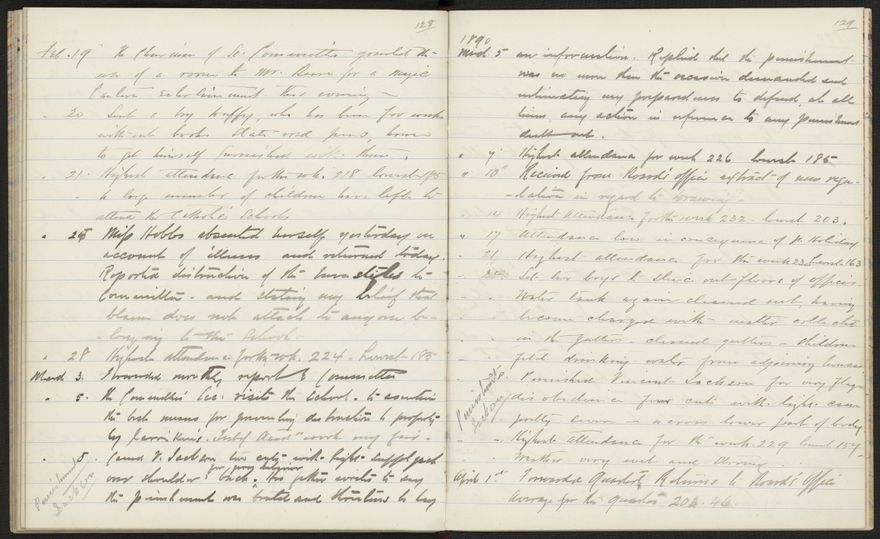 128
Feb. 19 The Chairman of Sc. Committee granted the
use of a room to Mr. for a magic
Lantern Entertainment this evening
" 20 Sent a boy , who has been for weeks
without books slate and pens, home
to get himself furnished with them.
" 21 Highest attendance for the wk. 218 lowest 195
" a large number of children have left to
attend the Catholic Schools
" 25 Miss Hobbs absented herself yesterday on
account of illness and returned today.
Reported destruction of the to
Committee and stating my belief that
blame does not attach to anyone be-
longing to this School.
" 28 Highest attendance for the wk. 224 - Lowest 185
March 3. Forwarded monthly report to Committee
" 5. The Committee visits the School to ascertain
the best means for preventing destruction to property
by . work very fair.
" 5 Caned V. Jackson two cuts with light
over shoulder & back for gross . His father writes to say
the punishment was brutal and threatens to lay
Punishment
Jackson.
129
1890
March 5 an information. Replied that the punishment
was no more than the occasion demanded and
intimating my preparedness to defend, at all
times any action in reference to any punishment
dealt out.
" 7 Highest attendance for week 226 lowest 185
" 10th Received from Board's Office extract of new regu-
lation in regard to drawing.
" 14 Highest Attendance for the week 232 - lowest 203.
" 17 Attendance low in consequence of St. Holiday
" 21 Highest attendance for the week lowest 163
Set two boys to out floors of offices.
" " Water tank again cleaned out, having
become charged with matter collected
in the gutters - cleaned gutters - children
drinking water from adjoining houses.
" " Punished Vincent Jackson for very
disobedience four cuts with light cane
partly across lower part of body
Punishment
Jackson
" " Highest attendance for the week 229 lowest 157.
Weather very wet and
April 1st Forwarded Quarterly Returns to Board's Office
Average for the Quarter 203.46.